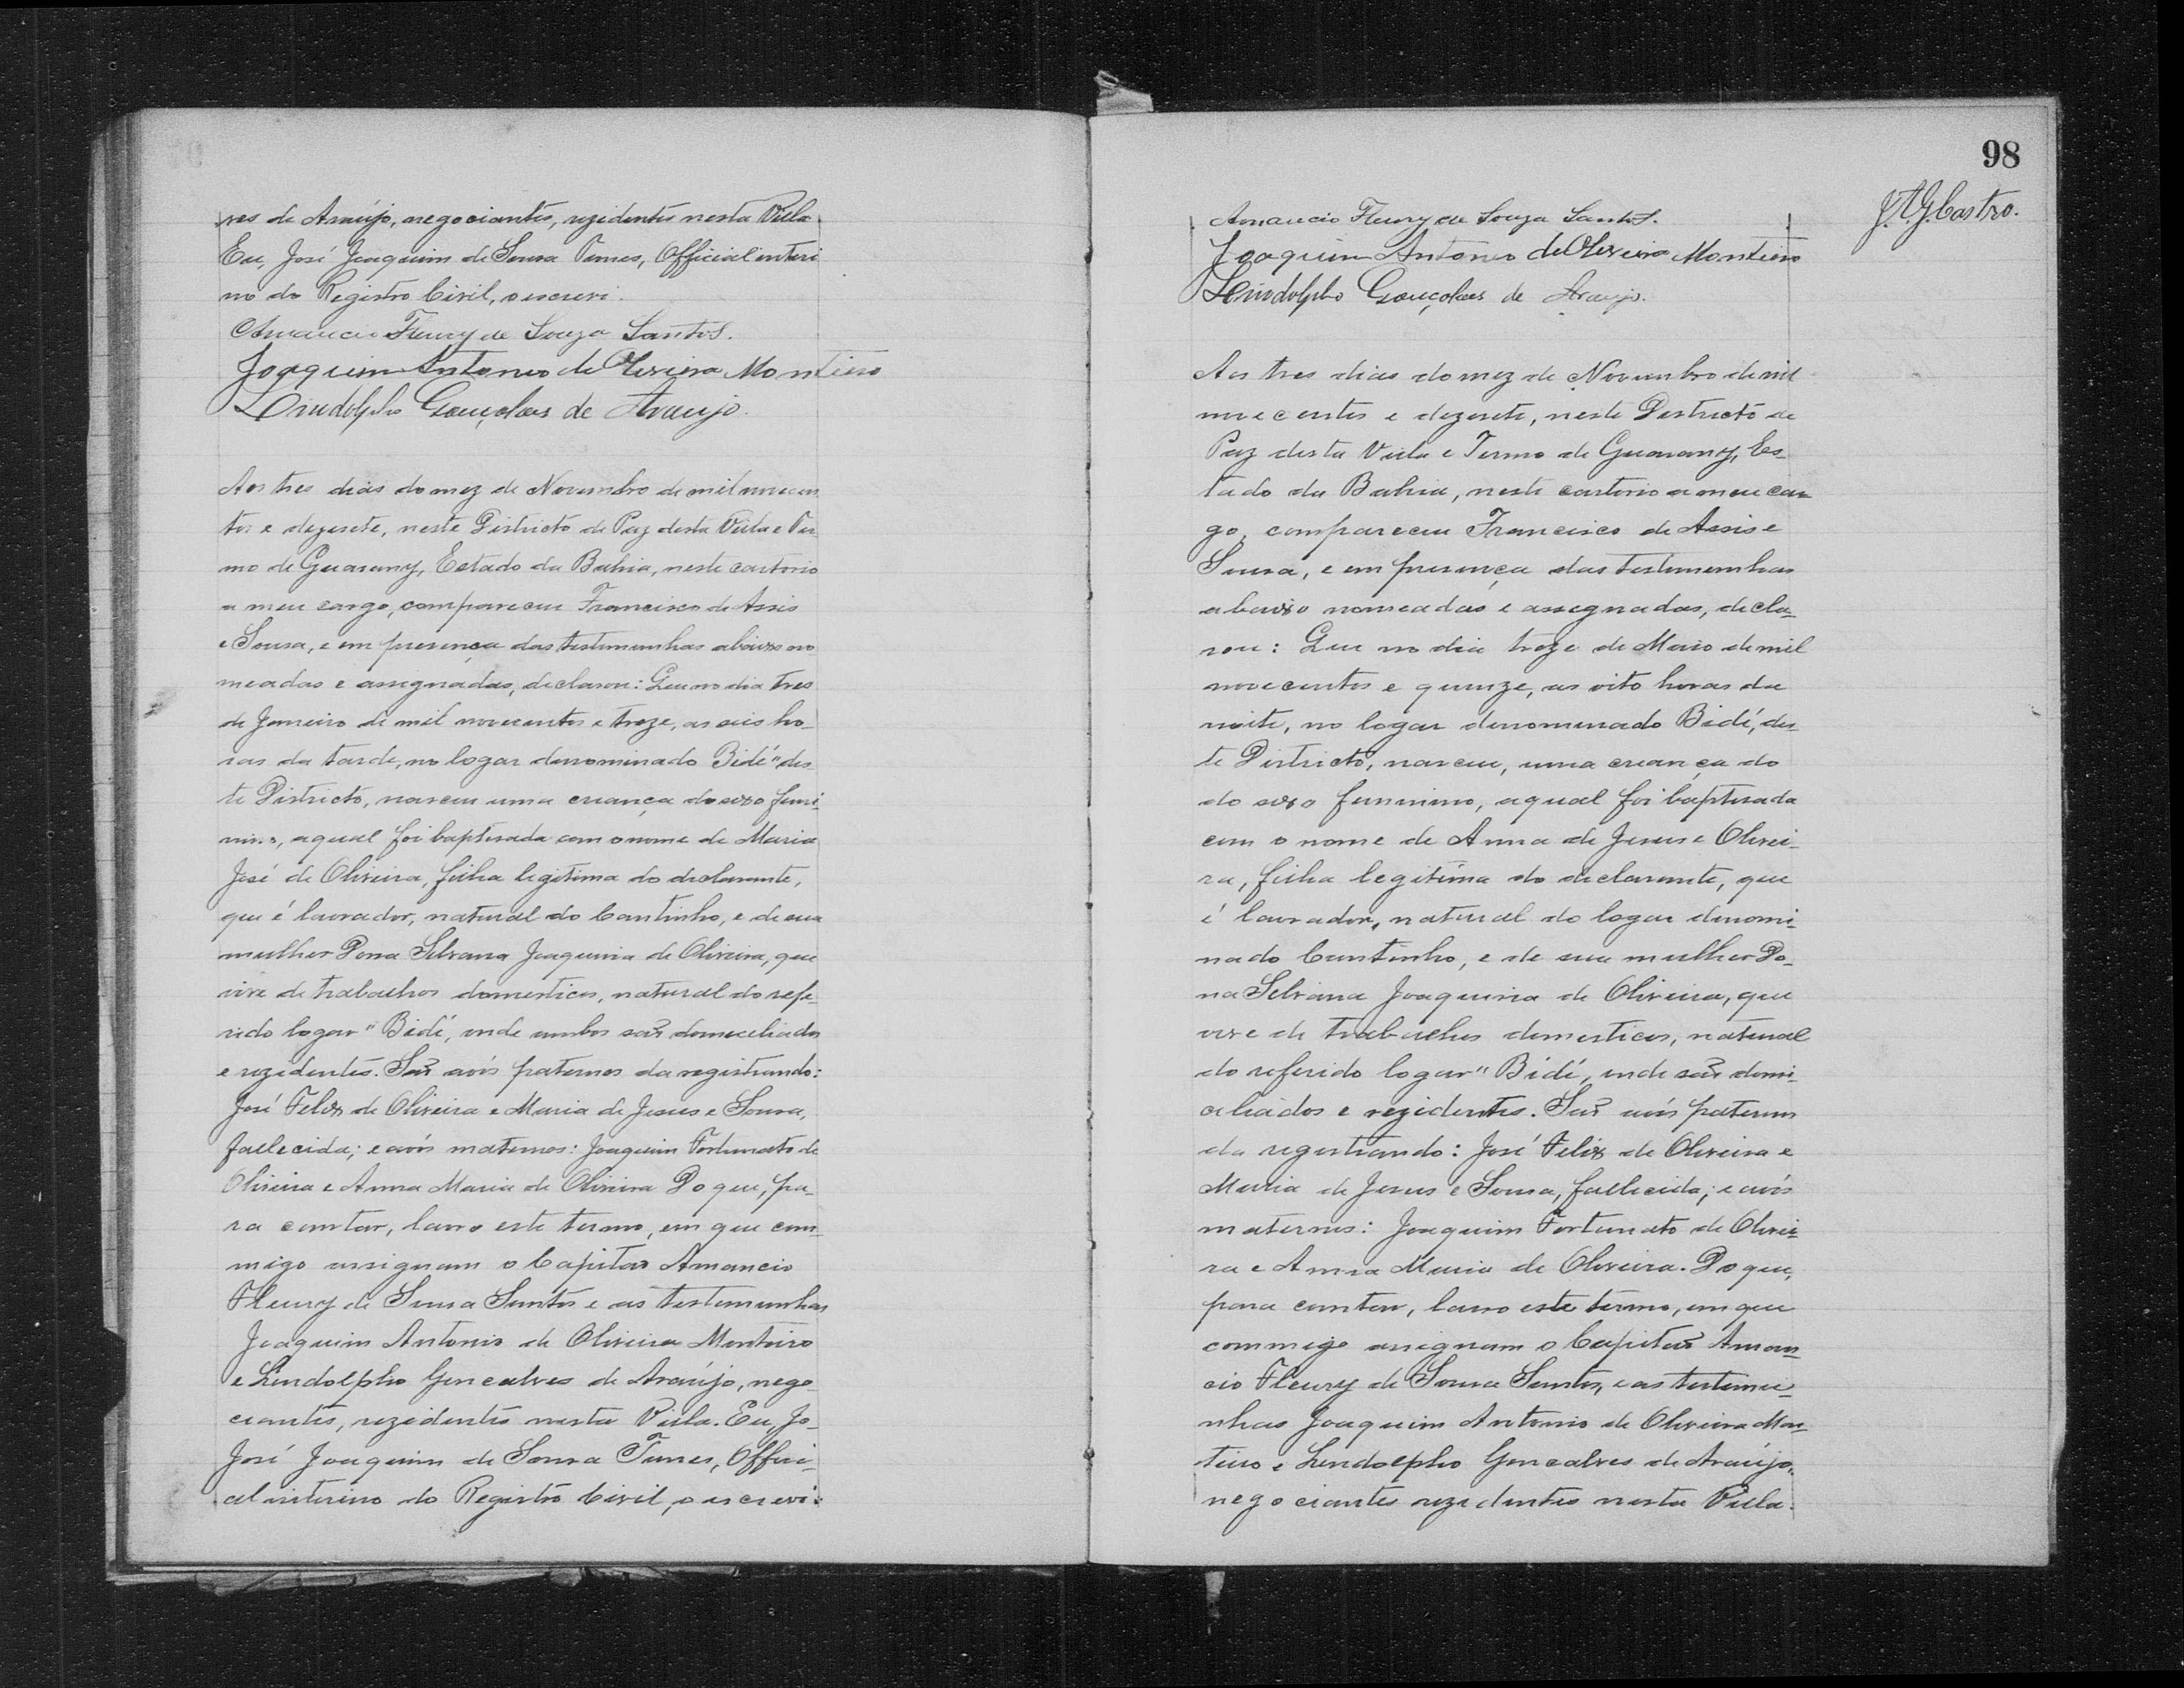 res de Araújo, negociantes, rezidentes nesta Villa.
Eu, José Joaquim de Sousa Tunes, Official interi
no do Registro Civil, o escrevi.
Amancio Fleury de Souza Santos.
Joaquim Antonio de Oliveira Monteiro
Lindolpho Gonçalves de Araujo.
Aos tres dias do mez de Novembro de mil novecen
tos e dezesete, neste Districto de Paz desta Villa e Ter
mo de Guarany, Estado da Bahia, neste cartorio
a meu cargo, compareceu Francisco de Assis
e Sousa, e em presença das testemunhas abaixo no
meadas e assignadas, declarou: Que no dia tres
de Janeiro de mil novecentos e treze, as seis ho-
ras da tarde, no logar denominado Bidé" des-
te Districto, nasceu uma criança do sexo femi-
nino, a qual foi baptisada com o nome de Maria
José de Oliveira, filha legitima do declarante,
que é lavrador, natural do Cantinho, e de sua
mulher Dona Silvana Joaquina de Oliveira, que
vive de trabalhos domesticos, natural do refe-
rido logar "Bidé, onde ambos são domiciliados
e rezidentes. São avós paternos da registrando:
José Felix de Oliveira e Maria de Jesus e Sousa,
fallecida; e avós maternos: Joaquim Fortunato de
Oliveira e Anna Maria de Oliveira Do que, pa-
ra constar, lavro este termo, em que com-
migo assignam o Capitão Amancio
Fleury de Sousa Santos e as testemunhas
Joaquim Antonio de Oliveira Monteiro
e Lindolpho Goncalves de Araújo, nego-
ciantes, rezidentes nesta Villa. Eu, Jo-
José Joaquim de Sousa Tunes, Offici-
al interino do Registro Civil, o escrevi.
98
J. A. G. Castro.
Amancio Fleury de Souza Santos.
Joaquim Antonio de Oliveira Monteiro
Lindolpho Gonçalves de Araujo.
Aos tres dias do mez de Novembro de mil
novecentos e dezesete, neste Districto de
Paz desta Villa e Termo de Guarany, Es-
tado da Bahia, neste cartorio a meu car-
go, compareceu Francisco de Assis e
Sousa, e em presença das testemunhas
abaixo nomeadas e assegnadas, decla-
rou: Que no dia treze de Maio de mil
novecentos e quinze, as oito horas da
noite, no logar denominado Bidé, des-
te Districto, nasceu, uma criança do
do sexo feminino, a qual foi baptisada
com o nome de Anna de Jesus e Olivei-
ra, filha legitima do declarante, que
é lavrador, natural do logar denomi-
nado Cantinho, e de sua mulher Do-
na Silvana Joaquina de Oliveira, que
vive de trabalhos domesticos, natural
do referido logar "Bidé, onde são domi-
ciliados e rezidentes. São avós paternos
da registrando: José Felix de Oliveira e
Maria de Jesus e Sousa, fallecida; e avós
maternos: Joaquim Fortunato de Olivei-
ra e Anna Maria de Oliveira. Do que,
para constar, lavro este termo, em que
commigo assignam o Capitão Aman-
cio Fleury de Sousa Santos, e as testemu-
nhas Joaquim Antonio de Oliveira Mon-
teiro e Lindolpho Goncalves de Araújo,
negociantes rezidentes nesta Villa.